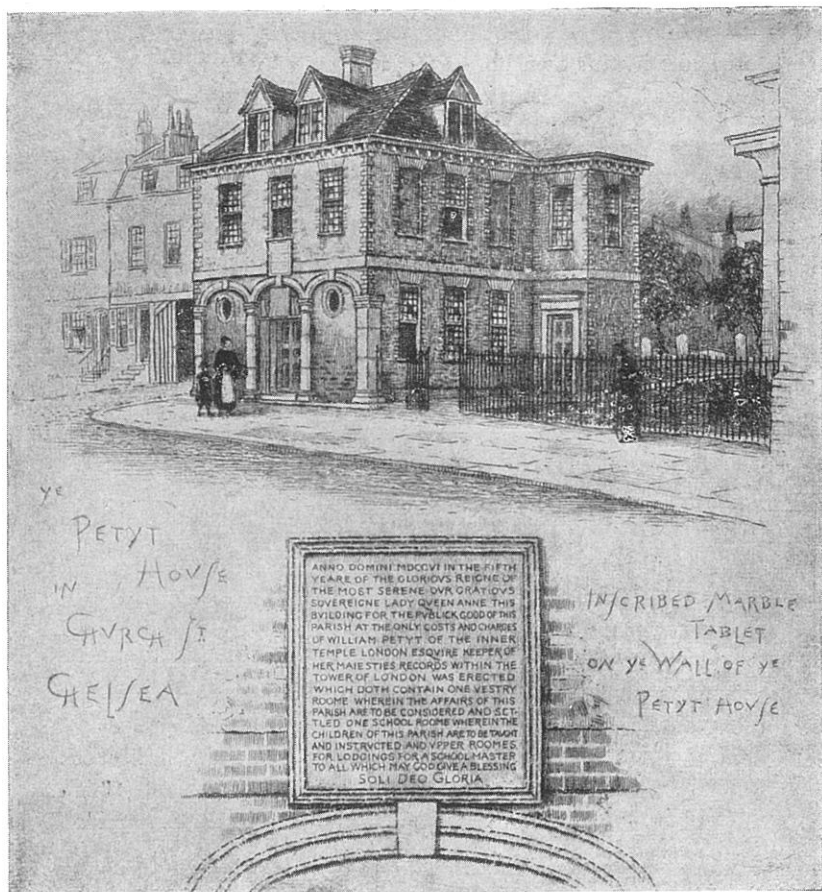 ye
PETYT
HOVSE
IN
CHVRCH ST.
CHELSEA
ANNO DOMINI MDCCVI IN THE FIFTH
YEARE OF THE GLORIOVS REIGNE OF
THE MOST SERENE OVR GRATIOVS
SOVEREIGNE LADY QUEEN ANNE THIS
BVILDING FOR THE PVBLICK GOOD OF THIS
PARISH AT THE ONLY COSTS AND CHARGES
OF WILLIAM PETYT OF THE INNER
TEMPLE LONDON ESQVIRE KEEPER OF
HER MAIESTIES RECORDS WITHIN THE
TOWER OF LONDON WAS ERECTED
WHICH DOTH CONTAIN ONE VESTRY
ROOME WHEREIN THE AFFAIRS OF THIS
PARISH ARE TO BE CONSIDERED AND SET-
TLED ONE SCHOOL ROOME WHEREIN THE
CHILDREN OF THIS PARISH ARE TO BE TAUGHT
AND INSTRVCTED AND VPPER ROOMES
FOR LODGINGS FOR A SCHOOL MASTER
TO ALL WHICH MAY GOD GIVE A BLESSING
SOLI DEO GLORIA
INSCRIBED MARBLE
TABLET
ON ye WALL OF ye
PETYT HOVSE